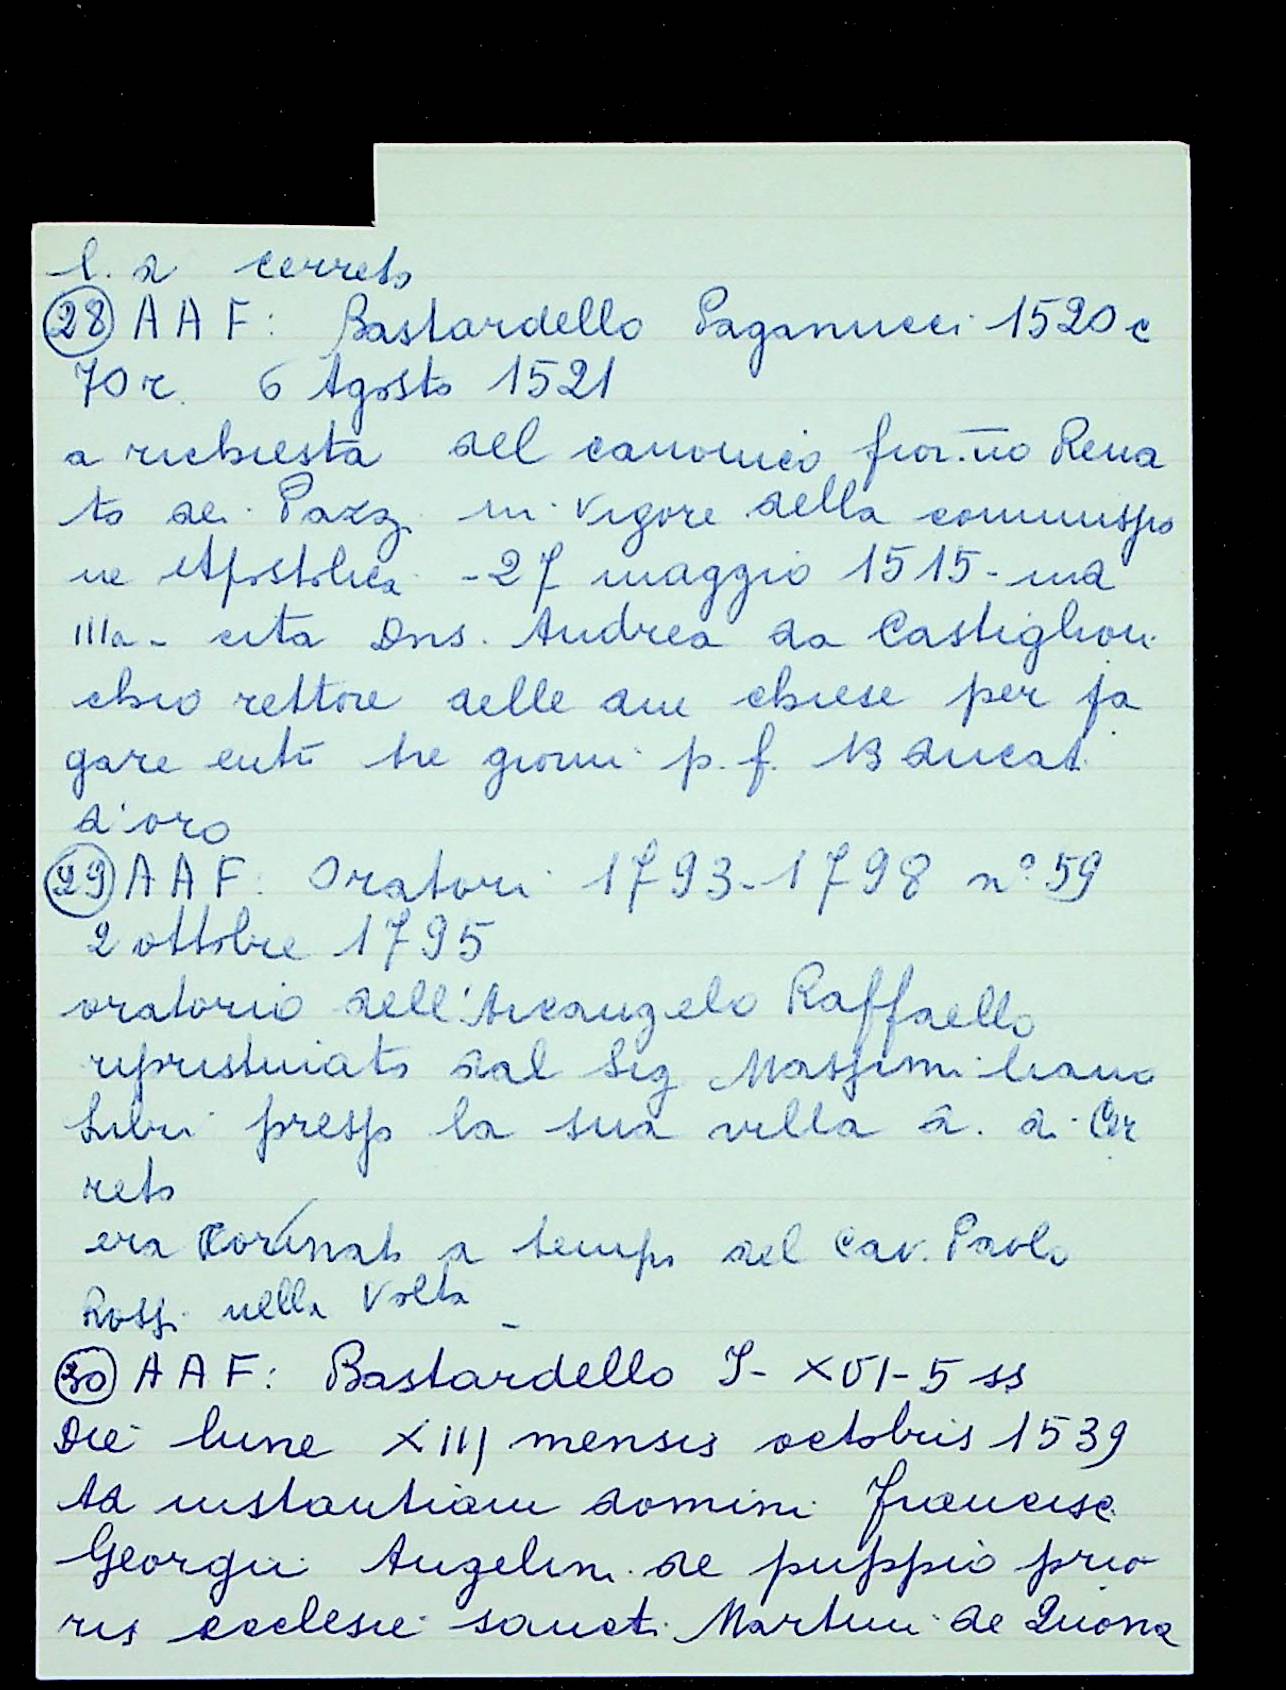 l. a cerreto
28 AAF: Bastardello Paganucci 1520 c
70 r. 6 Agosto 1521
a richiesta del canonico fior.no Rena
to dei Pazzi in vigore della commissio
ne Apostolica - 27 maggio 1515 - ind
IIIa - cita Dns. Andrea da Castiglion
chio rettore delle due chiese per pa
gare entro tre giorni p. f. 13 ducati
d'oro
29 AAF: Oratori 1793-1798 n° 59
2 ottobre 1795
oratorio dell'Arcangelo Raffaello
ripristinato dal Sig Massimiliano
Libri presso la sua villa a. di Cer
reto
era a tempo del Cav. Paolo
Rossi nella Volta -
30 AAF: Bastardello I - XVI - 5 ss
Die lune XIIJ mensis octobris 1539
Ad instantiam domini Francisci
Georgii Angelini de puppio prio
ris ecclesie sancti Martini de Quona